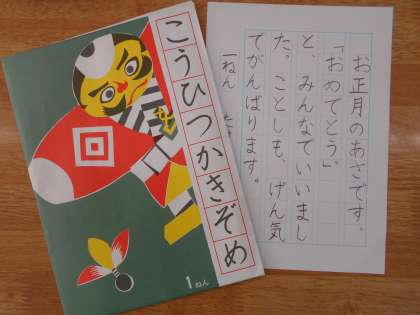 こうひつかきぞめ
1ねん
お正月のあさです。
「おめでとう」
と、みんなでいいまし
た。ことしも、げん気
でがんばります。
一ねん